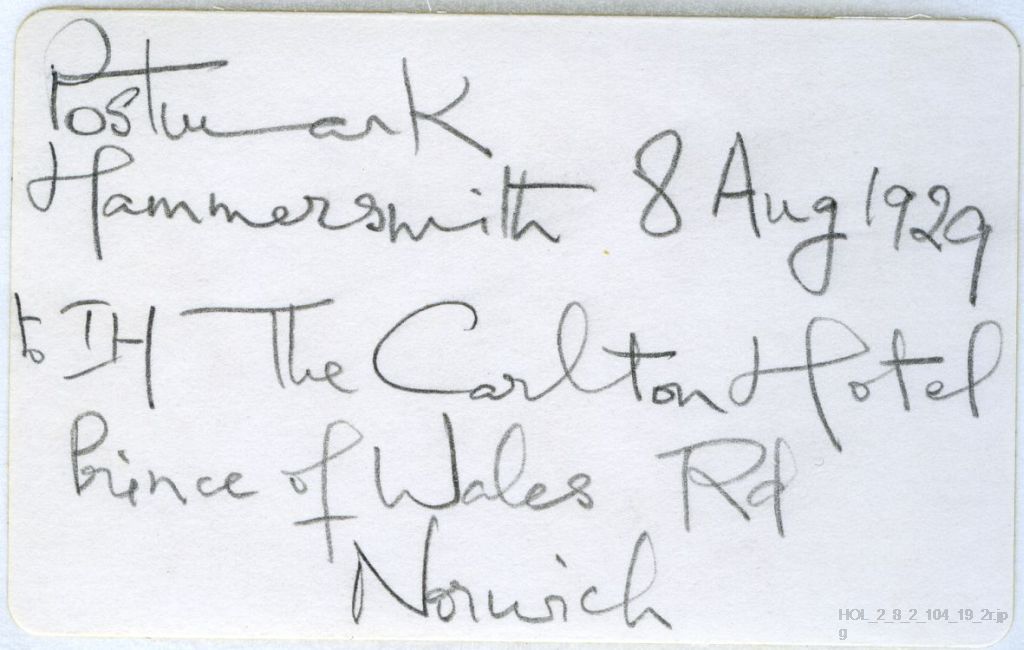 Postmark
Hammersmith 8 Aug 1929
to IH The Carlton Hotel
Prince of Wales Rd
Norwich
HOL_2_8_2_104_19_2r.jp
g